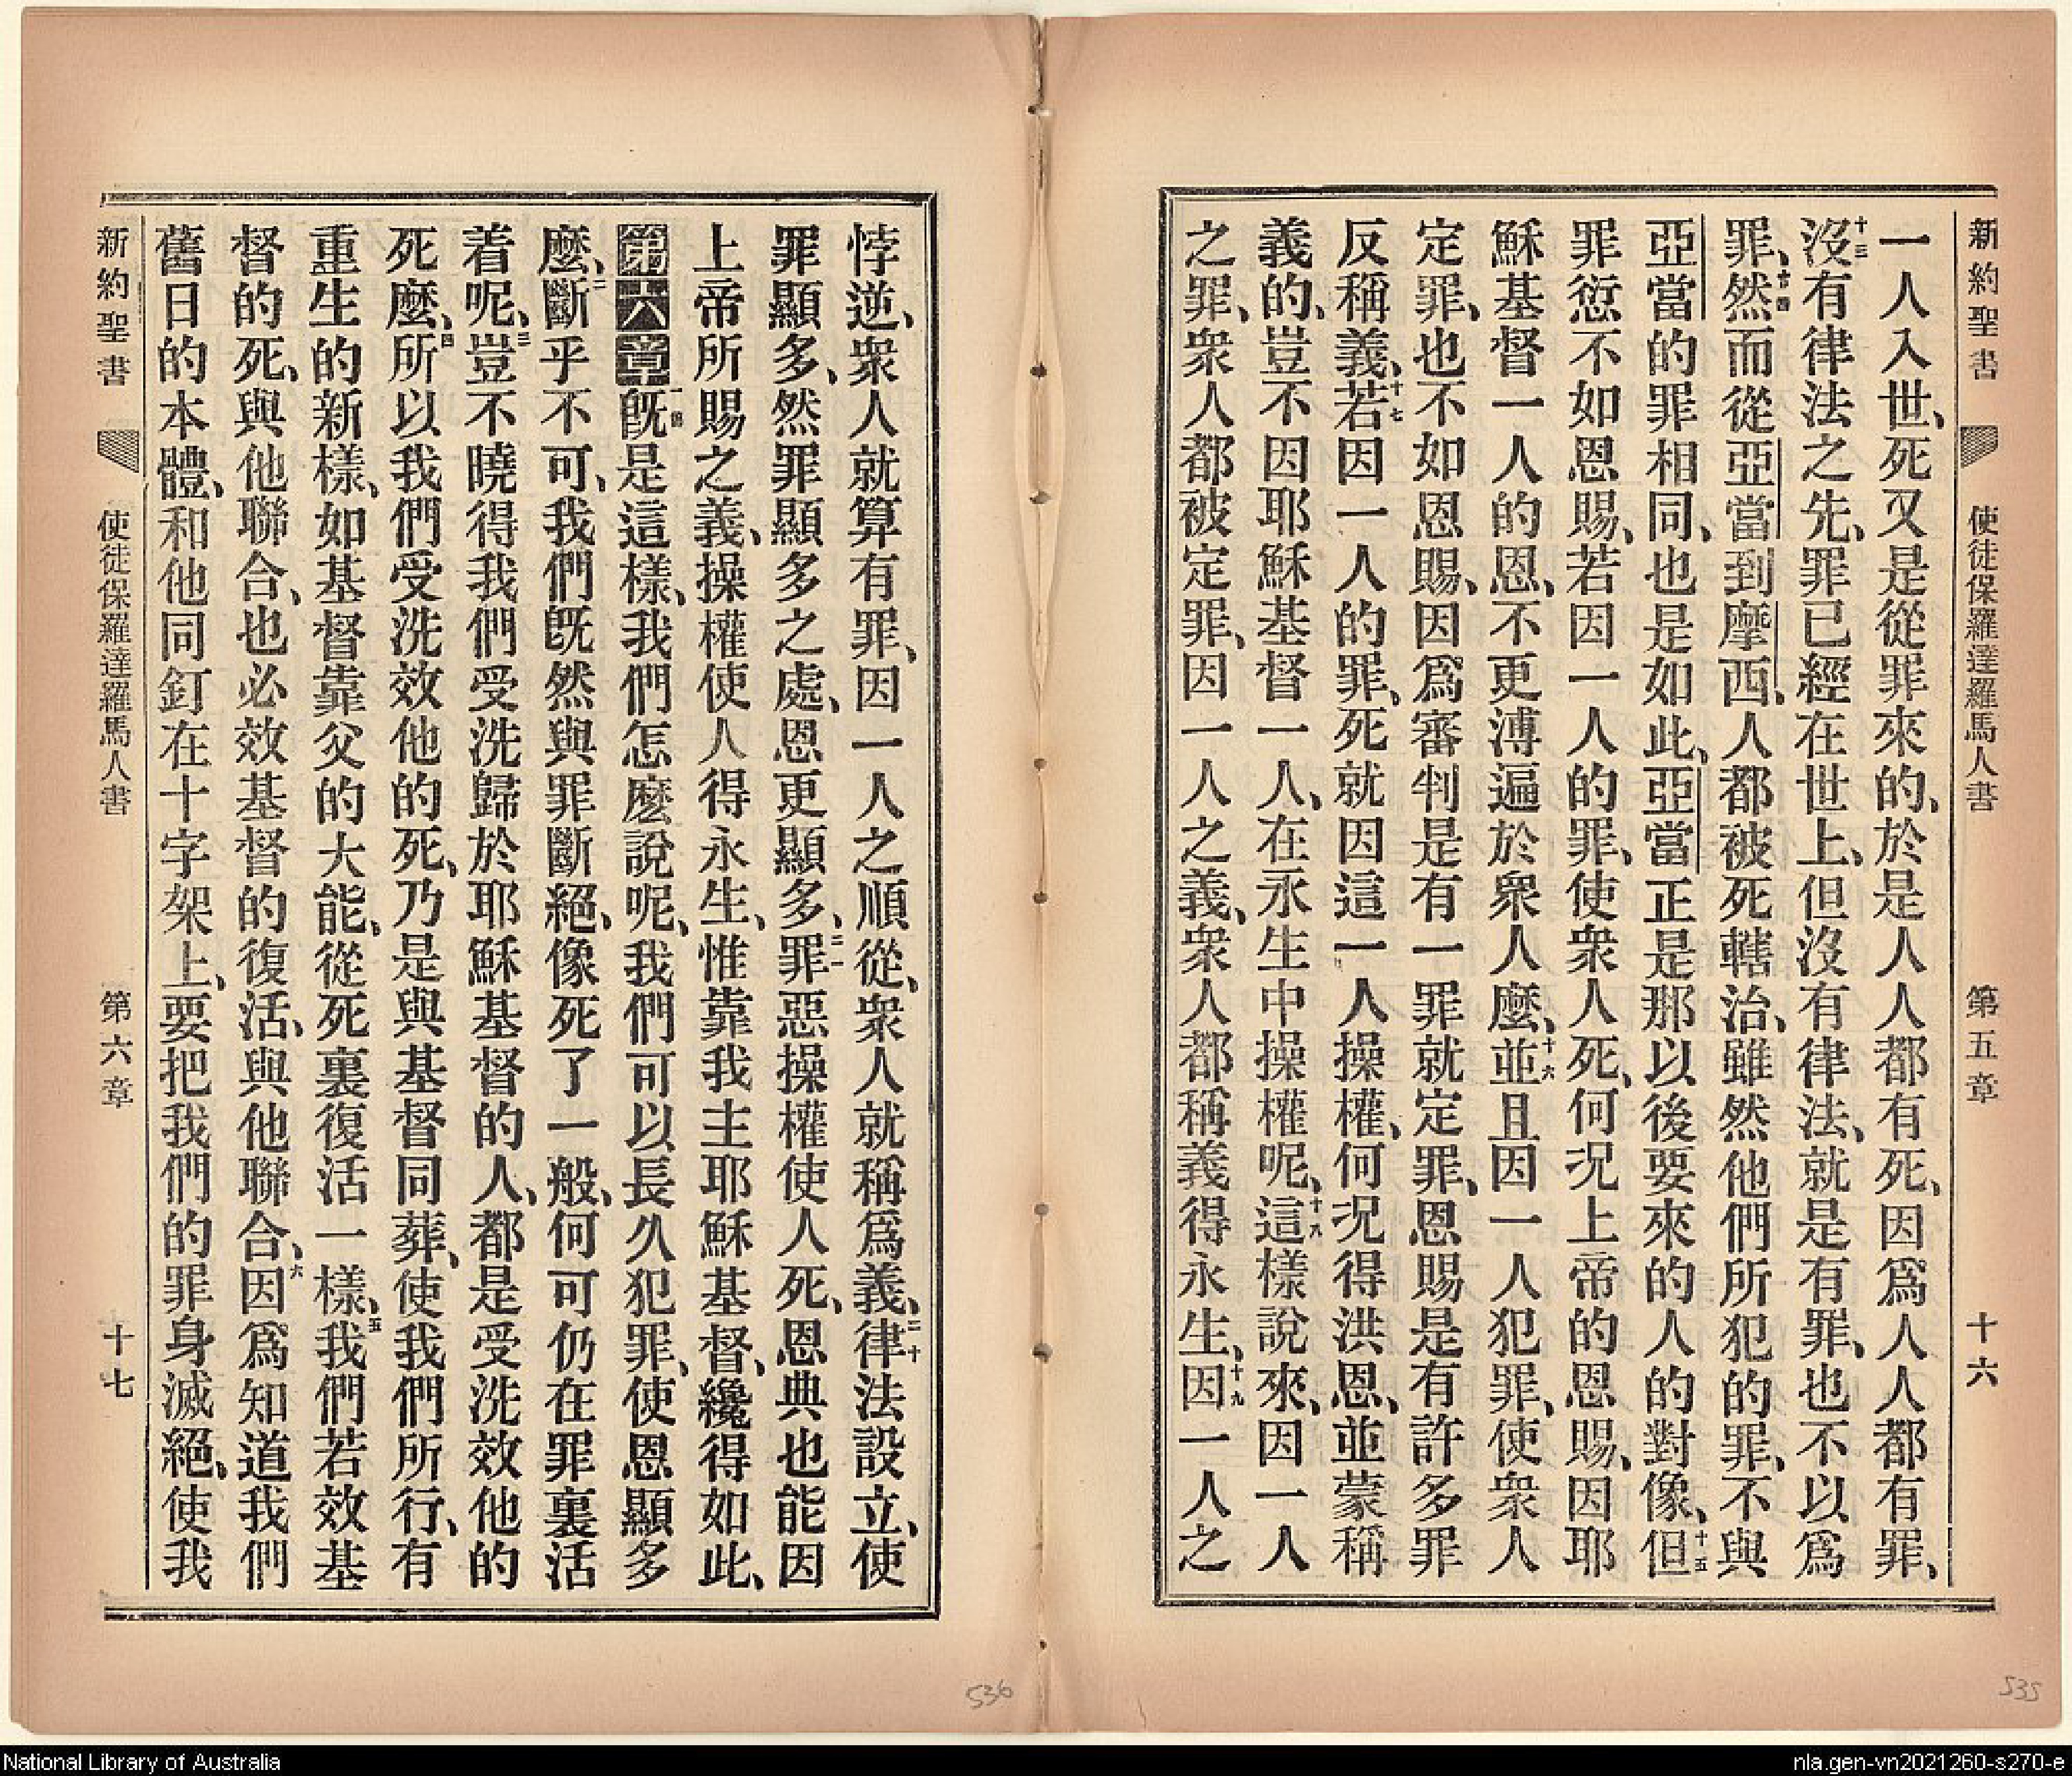 新約聖書 使徒保羅達羅馬人書 第五章 十六
一人入世、死又是從罪來的、於是人人都有死、因爲人人都有罪、
十三沒有律法之先、罪已經在世上、但沒有律法、就是有罪、也不以爲
罪、十四然而從亞當到摩西、人都被死轄治、雖然他們所犯的罪、不與
亞當的罪相同、也是如此、亞當正是那以後要來的人的對像、十五但
罪愆不如恩賜、若因一人的罪、使衆人死、何况上帝的恩賜、因耶
穌基督一人的恩、不更溥遍於衆人麼、十六並且因一人犯罪、使衆人
定罪、也不如恩賜、因爲審判是有一罪就定罪、恩賜是有許多罪
反稱義、十七若因一人的罪、死就因這一人操權、何况得洪恩、並蒙稱
義的、豈不因耶穌基督一人、在永生中操權呢、十九這樣說來、因一人
之罪、衆人都被定罪、因一人之義、衆人都稱義得永生、十九因一人之
悖逆、衆人就算有罪、因一人之順從、衆人就稱爲義、二十律法設立、使
罪顯多、然罪顯多之處、恩更顯多、二一罪惡操權使人死、恩典也能因
上帝所賜之義、操權使人得永生、惟靠我主耶穌基督、纔得如此、
第六章 一旣是這樣、我們怎麼說呢、我們可以長久犯罪、使恩顯多
麼、二斷乎不可、我們旣然與罪斷絕、像死了一般、何可仍在罪裏活
着呢、三豈不曉得我們受洗歸於耶穌基督的人、都是受洗效他的
死麼、四所以我們受洗效他的死、乃是與基督同葬、使我們所行、有
重生的新樣、如基督靠父的大能、從死裏復活一樣、五我們若效基
督的死、與他聯合、也必效基督的復活、與他聯合、六因爲知道我們
舊日的本體、和他同釘在十字架上、要把我們的罪身滅絕、使我
新約聖書 使徒保羅達羅馬人書 第六章 十七
536
535
National Library of Australia
nla.gen-vn2021260-s270-e